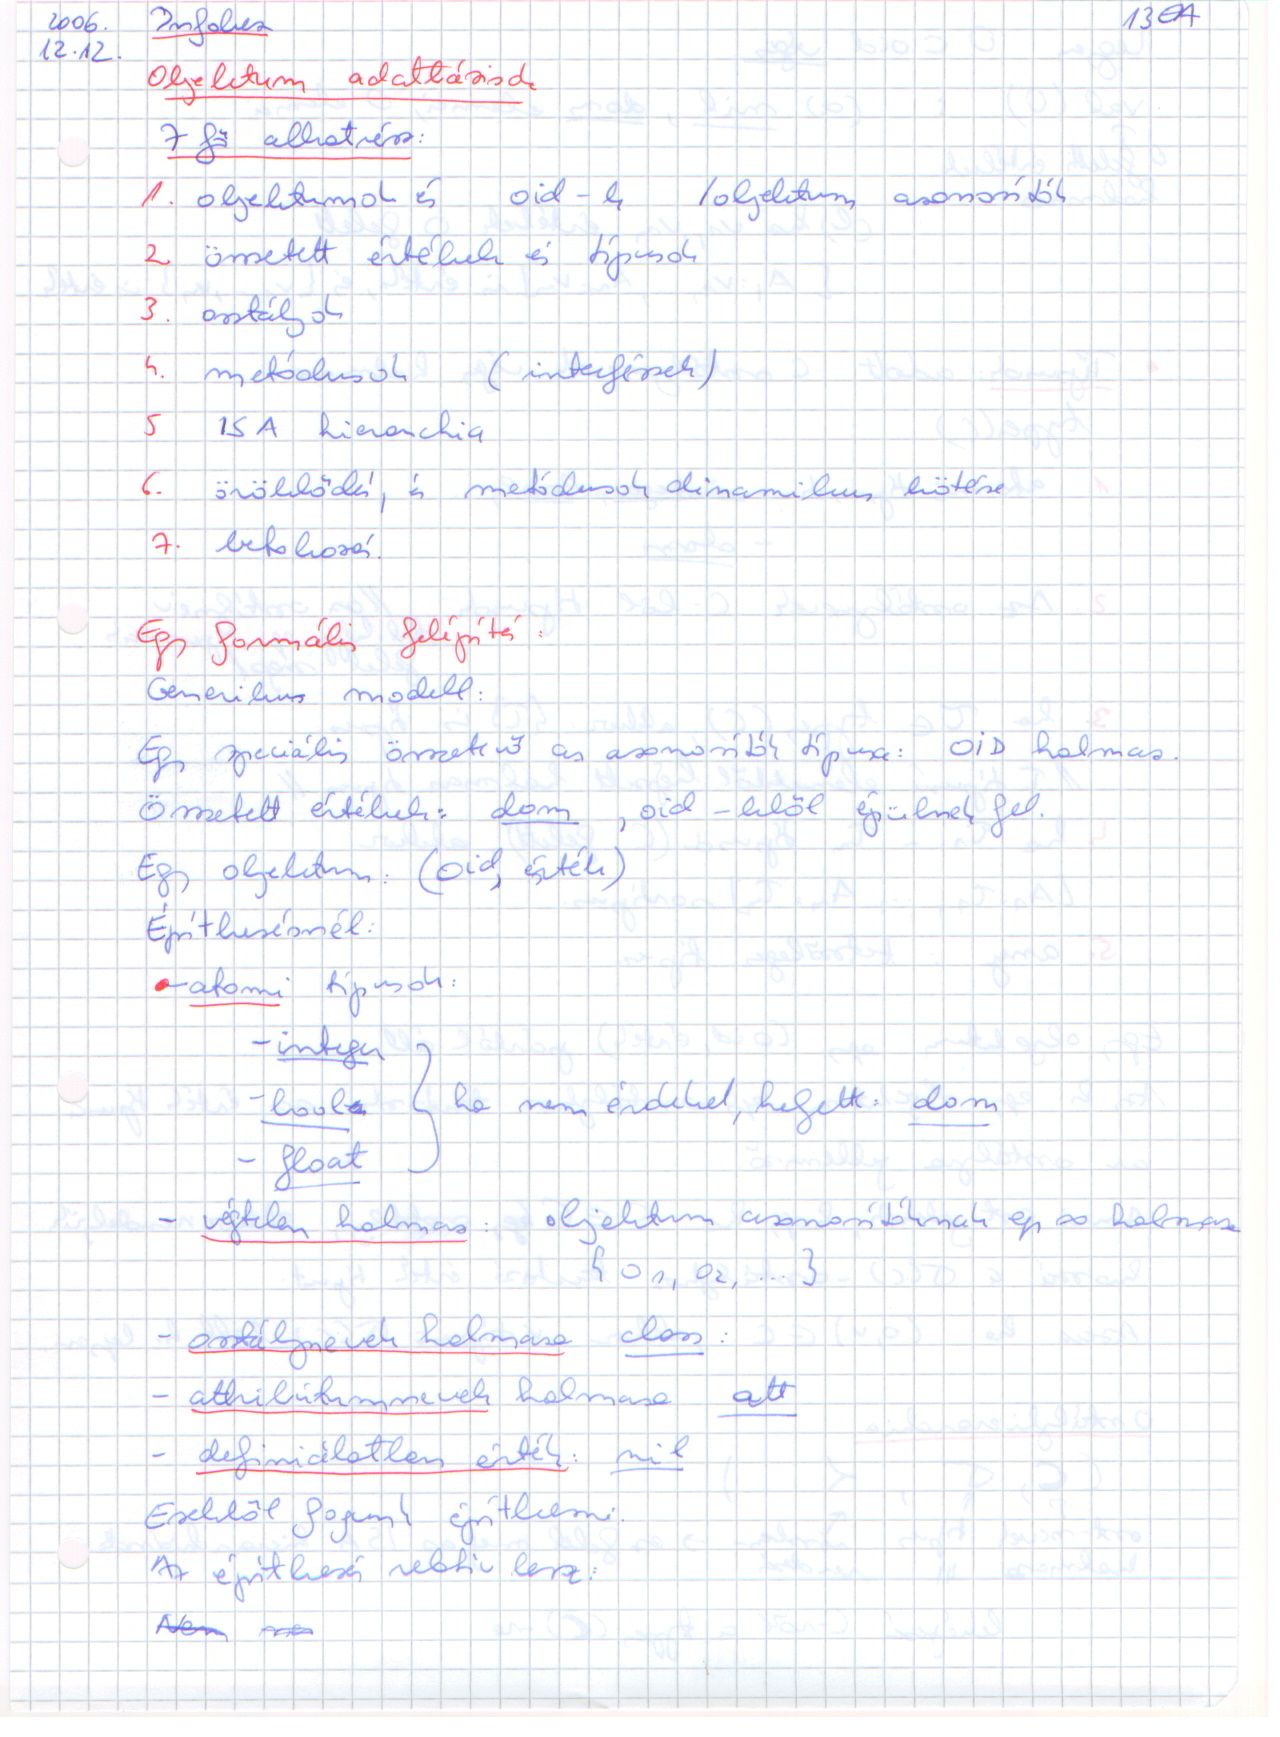 2006. 12.12.
13EA
Objektum adatbázisok
7 fő alkotrész:
1. objektumok és oid-k /objektum azonosítók
2. összetett értékek és típusok
3. osztályok
4. metódusok (interfészek)
5 ISA hierarchia
6. öröklődés, és metódusok dinamikus kötése
7. betokozás.
Egy formális felépítés:
Generikus modell:
Egy speciális összetevő az azonosítók típusa: OID halmaz.
Összetett értékek: dom, oid-kből épülnek fel.
Egy objektum: (oid, érték)
Építkezésnél:
- atomi típusok:
- integer
- bool
- float
ha nem érdekel, helyett: dom
- végtelen halmaz: objektum azonosítóknak egy ∞ halmaza
{ O1, O2, ... }
- osztálynevek halmaza class:
- attribútumnevek halmaza att
- definiálatlan érték: nil
Ezekből fogunk építkezni.
Az építkezés relatív lesz:
Nem